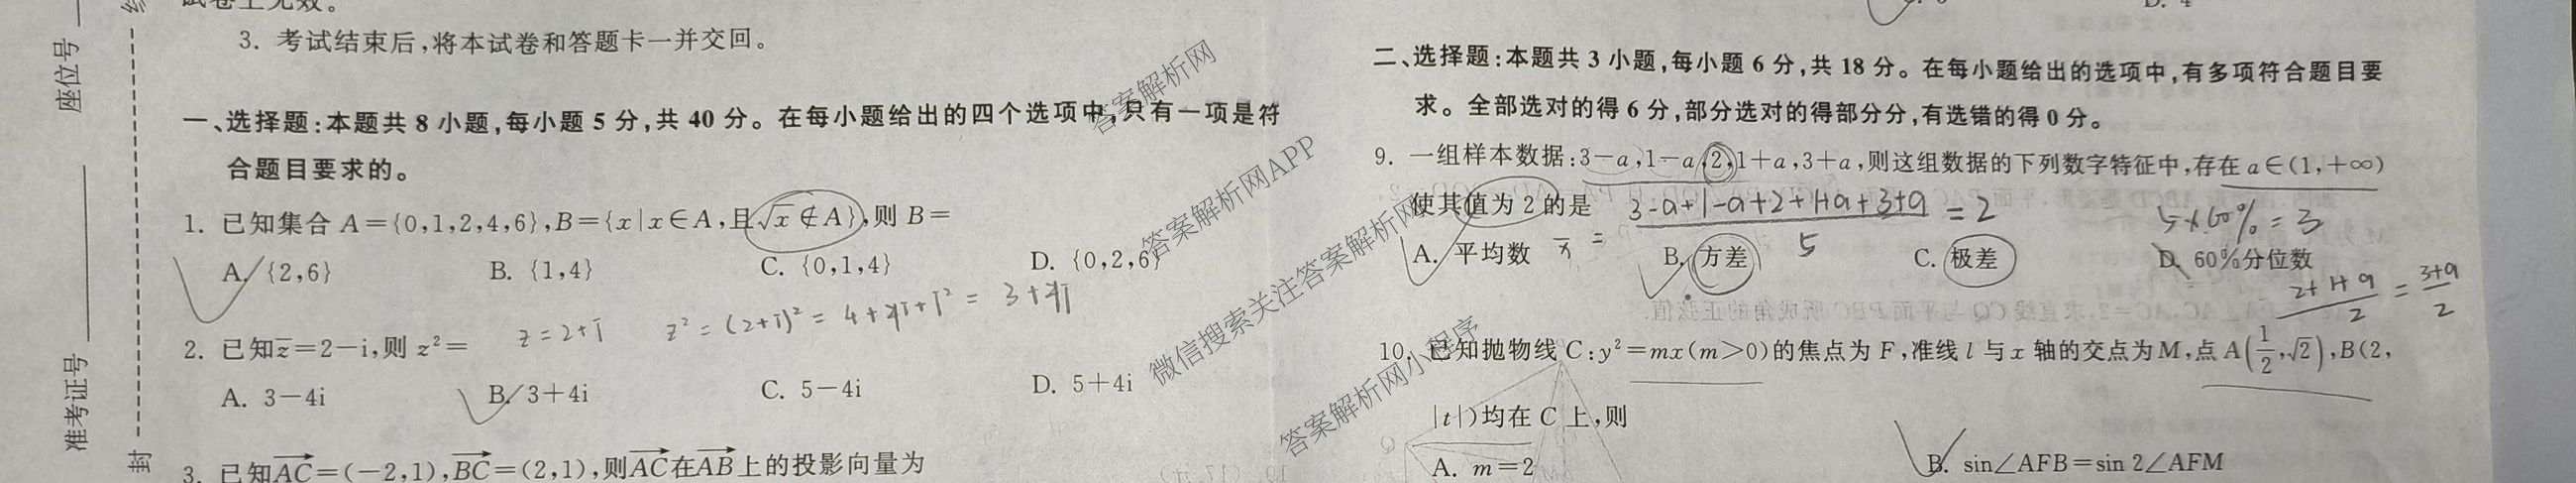 座位号
准考证号
封
3. 考试结束后,将本试卷和答题卡一并交回。
一、选择题:本题共 8 小题,每小题 5 分,共 40 分。在每小题给出的四个选项中,只有一项是符
合题目要求的。
1. 已知集合 A={0,1,2,4,6},B={x|x∈A,且√x∉A},则 B=
A. {2,6} B. {1,4} C. {0,1,4} D. {0,2,6}
2. 已知z̄=2-i,则 z²= z=2+i z²=(2+i)²=4+4i+i²=3+4i
A. 3-4i B. 3+4i C. 5-4i D. 5+4i
3. 已知AC→=(-2,1),BC→=(2,1),则AC→在AB→上的投影向量为
D. 4
二、选择题:本题共 3 小题,每小题 6 分,共 18 分。在每小题给出的选项中,有多项符合题目要
求。全部选对的得 6 分,部分选对的得部分分,有选错的得 0 分。
9. 一组样本数据:3-a,1-a,2,1+a,3+a,则这组数据的下列数字特征中,存在 a∈(1,+∞)
使其值为 2 的是 (3-a+1-a+2+1+a+3+a)/5=2 5×60%=3
A. 平均数 x̄= B. 方差 C. 极差 D. 60%分位数
(2+1+a)/2=(3+a)/2
10. 已知抛物线 C:y²=mx(m>0)的焦点为 F,准线 l 与 x 轴的交点为 M,点 A(1/2,√2),B(2,
|t|)均在 C 上,则
A. m=2 B. sin∠AFB=sin 2∠AFM
答案解析网
答案解析网APP
微信搜索关注答案解析网
答案解析网小程序